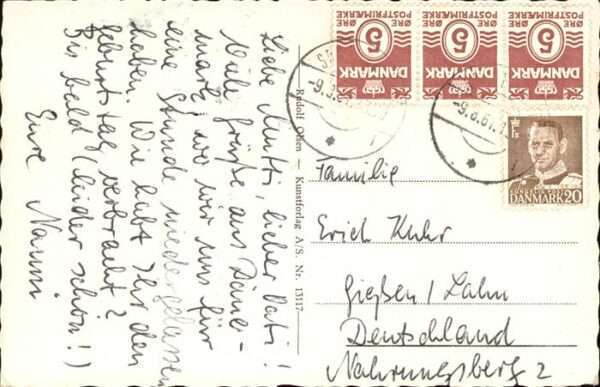 Liebe Mutti, lieber Vati!
Viele Grüße aus Däne-
mark, wo wir uns für
eine Stunde niedergelassen
haben. Wie habt Ihr den
Geburtstag verbracht?
Bis bald (leider schon!)
Eure Nanni
Rudolf Olsen — Kunstforlag A/S. Nr. 13117
5 ØRE
POSTFRIMÆRKE
DANMARK
5 ØRE
POSTFRIMÆRKE
DANMARK
5 ØRE
POSTFRIMÆRKE
DANMARK
DANMARK 20
-9.8.61.
Familie
Erich Kuhr
Gießen / Lahn
Deutschland
Nahrungsberg 2